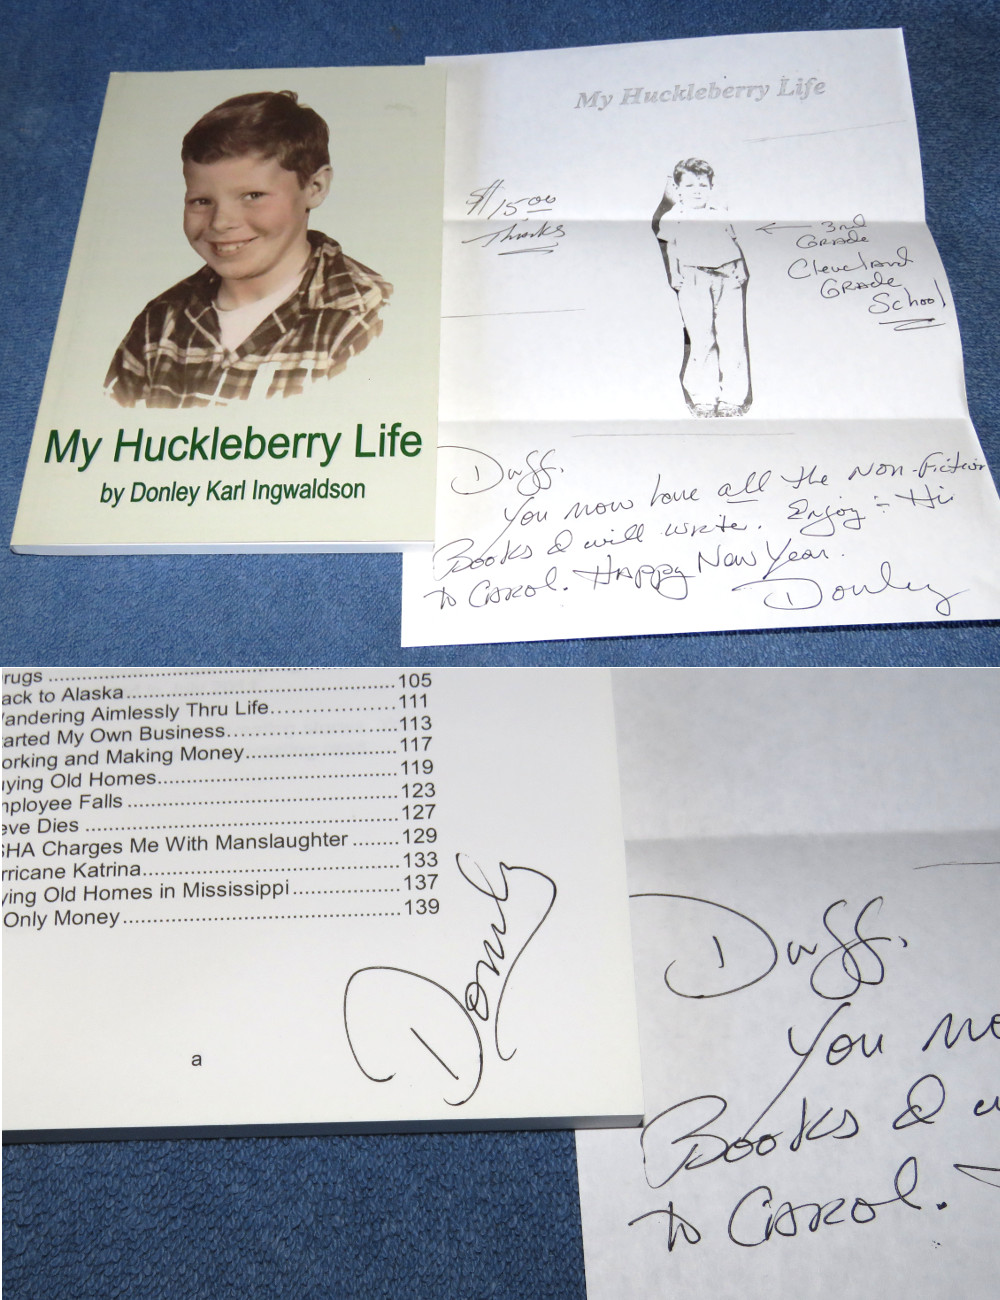 My Huckleberry Life
by Donley Karl Ingwaldson
My Huckleberry Life
$15.00
Thanks
3rd
GRADE
Cleveland
GRADE
School
Duff.
You now have all the Non-fiction
Books I will write. Enjoy - Hi
to CAROL. HAPPY New Year.
Donley
rugs
ack to Alaska 105
andering Aimlessly Thru Life 111
arted My Own Business 113
orking and Making Money 117
ying Old Homes 119
mployee Falls 123
eve Dies 127
SHA Charges Me With Manslaughter 129
rricane Katrina 133
ying Old Homes in Mississippi 137
Only Money 139
Donley
a
Duff.
You no
Books I w
to CAROL.